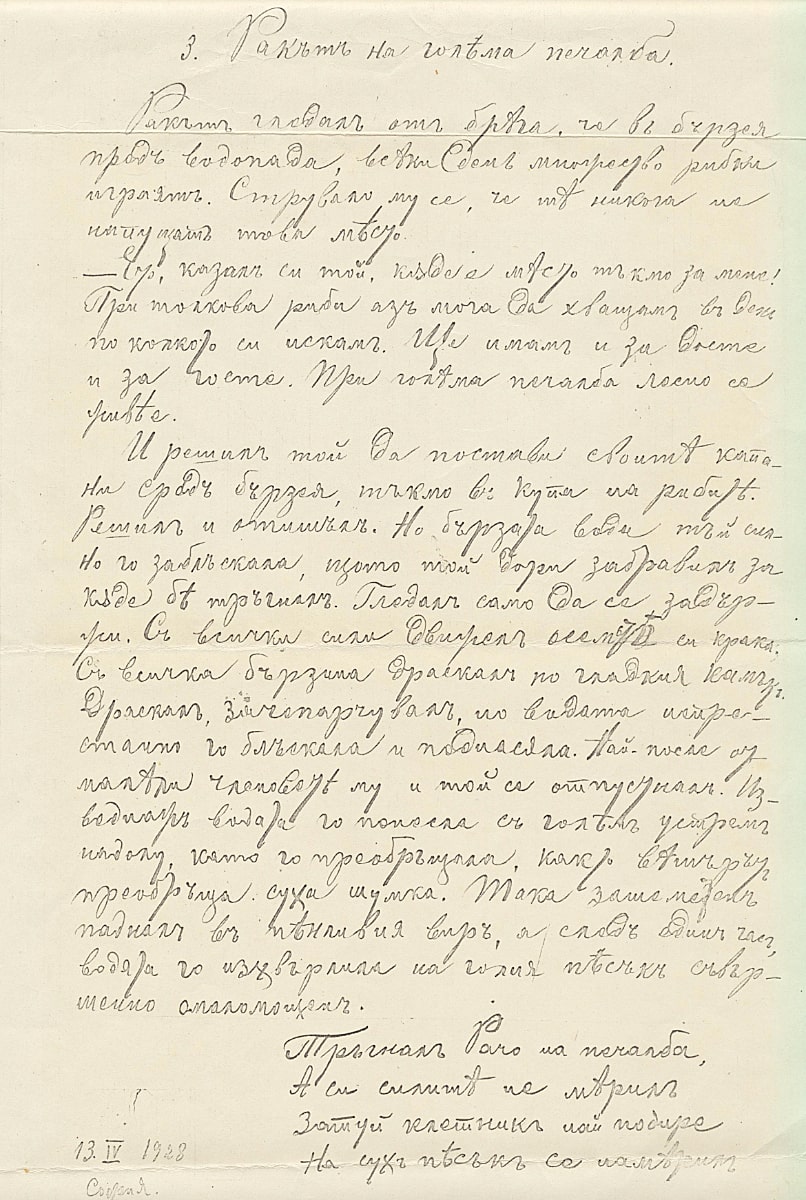 3. Ракътъ на голѣма печалба.
Ракътъ гледалъ отъ брѣга, че въ бързея
предъ водопада, всѣки день множество рибки
играятъ. Струвало му се, че тѣ никога не
напущатъ това мѣсто.
— Ето, казалъ си той, кѫде е мѣсто тъкмо за мене!
При толкова риби азъ мога да хващамъ въ день
по колкото си искамъ. Ще имамъ и за
и за гости. При голѣма печалба лесно се
живѣе.
И решилъ той да постави своитѣ капа-
ни средъ бързея, тъкмо въ купа на рибитѣ.
Решилъ и отишълъ. Но бързата вода тъй сил-
но го заблъскала, щото той дори забравилъ за
кѫде бѣ тръгналъ. Гледалъ само да се задър-
жи. Съ всички сили движелъ осемтѣ си крака.
Съ всичка бързина драскалъ по гладкия камъкъ.
Драскалъ, но водата непре-
станно го блъскала и подмясяла. Най-после от
малѣли членоветѣ му и той се отпусналъ. Из-
веднажъ водата го понесла съ голѣмъ устремъ
надолу, като го преобръщала, както вѣтърътъ
преобръща суха шумка. Така зашеметенъ
падналъ въ пѣнливия виръ, а следъ единъ часъ,
водата го изхвърлила на голия пѣсъкъ съвър-
шенно омаломощенъ.
Тръгналъ Рачо на печалба,
А си силитѣ не мѣрилъ
Затуй клетникъ най подире
На сухъ пѣсъкъ се намѣрилъ
13. IV 1928
София.